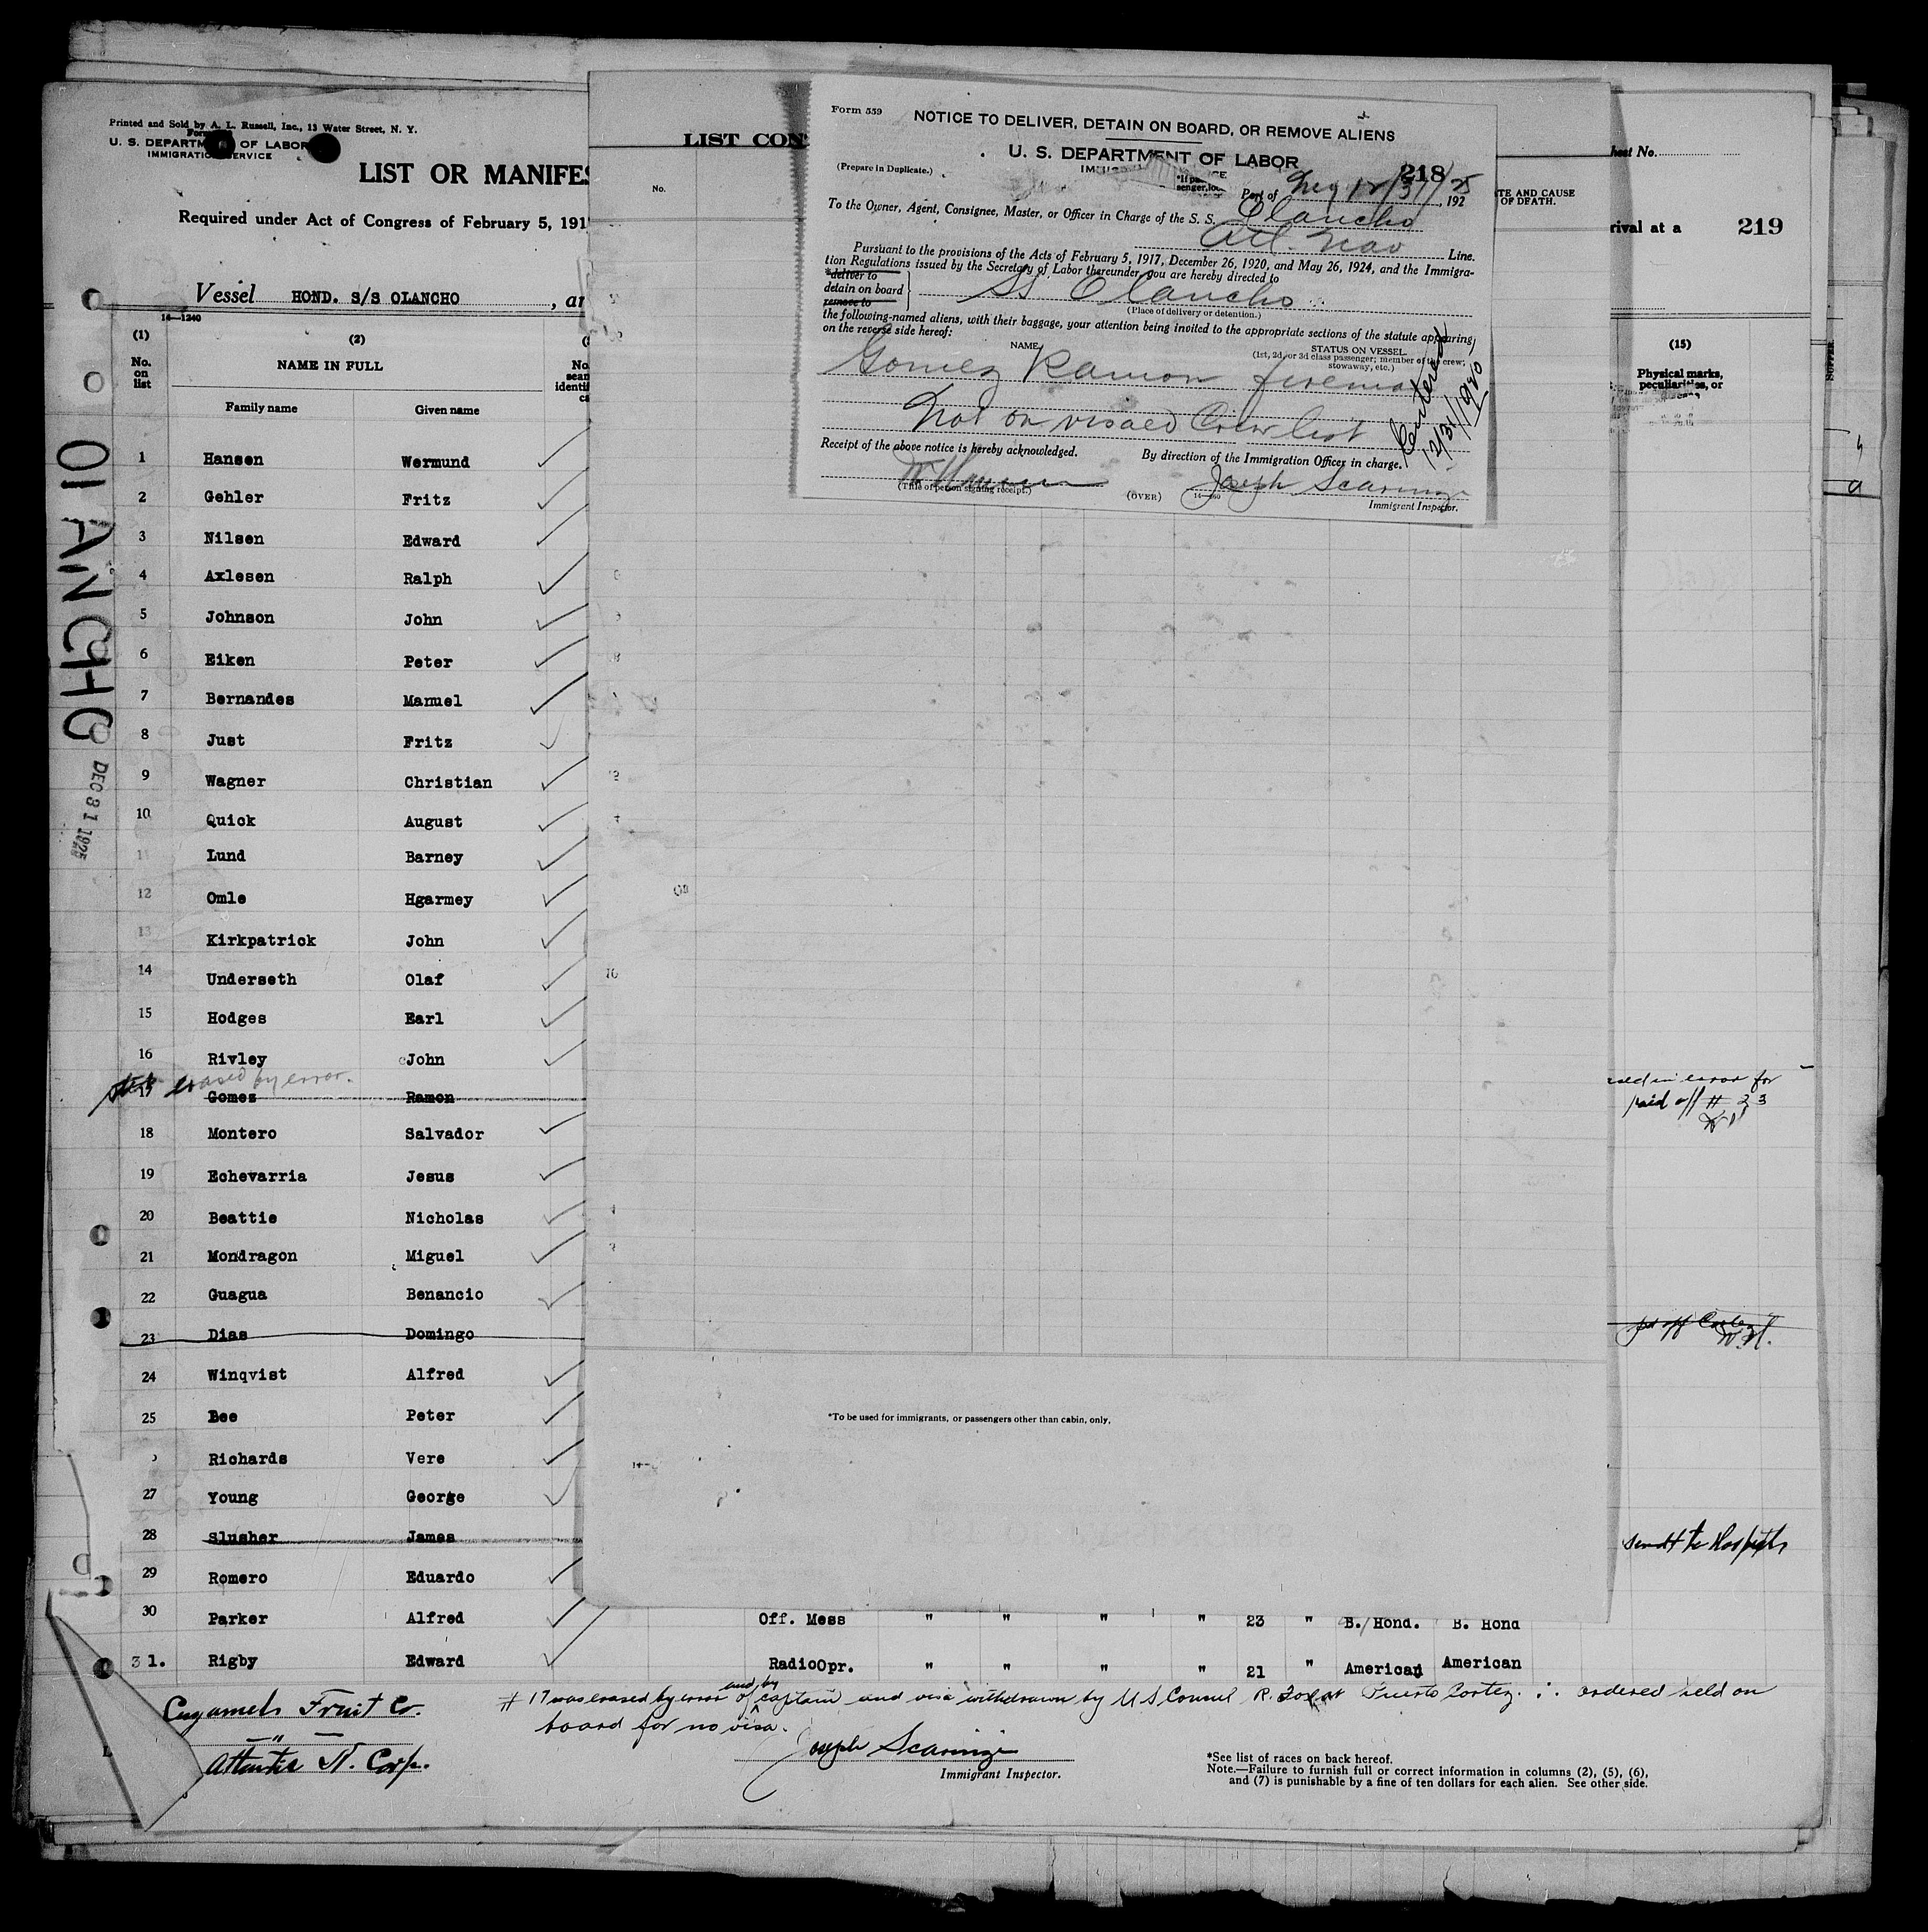 Printed and Sold by A. L. Russell, Inc., 13 Water Street, N. Y.
U. S. DEPARTM OF LABOR
IMMIGRATION SERVICE
LIST OR MANIFES
Required under Act of Congress of February 5, 191
Vessel HOND. S/S OLANCHO, ar
14—1240
(1) (2)
No. on list
NAME IN FULL
Family name Given name
1 Hansen Wermund
2 Gehler Fritz
3 Nilsen Edward
4 Axlesen Ralph
5 Johnson John
6 Eiken Peter
7 Bernandes Manuel
8 Just Fritz
9 Wagner Christian
10 Quick August
11 Lund Barney
12 Omle Hgarmey
13 Kirkpatrick John
14 Underseth Olaf
15 Hodges Earl
16 Rivley John
erased by error.
17 Gomez Ramon
18 Montero Salvador
19 Echevarria Jesus
20 Beattie Nicholas
21 Mondragon Miguel
22 Guagua Benancio
23 Dias Domingo
24 Winqvist Alfred
25 Bee Peter
Richards Vere
27 Young George
28 Slusher James
29 Romero Eduardo
30 Parker Alfred Off. Mess " " " " 23 " B. Hond. B. Hond
31. Rigby Edward RadioOpr. " " " " 21 " American American
# 17 was erased by error of captain and visa withdrawn by US Consul R. at Puerto Cortez. ∴ ordered held on
and by
board for no visa.
Cuyamel Fruit Co.
— " —
Atlantic N. Corp.
Joseph Scaringi
Immigrant Inspector.
*See list of races on back hereof.
Note.—Failure to furnish full or correct information in columns (2), (5), (6),
and (7) is punishable by a fine of ten dollars for each alien. See other side.
OLANCHO
DEC 31 1925
LIST CON
No.
*To be used for immigrants, or passengers other than cabin, only.
Form 559
NOTICE TO DELIVER, DETAIN ON BOARD, OR REMOVE ALIENS
U. S. DEPARTMENT OF LABOR
218
(Prepare in Duplicate.)
Port of 12/31, 1925
To the Owner, Agent, Consignee, Master, or Officer in Charge of the S. S. Olancho
Atl. Nav Line.
Pursuant to the provisions of the Acts of February 5, 1917, December 26, 1920, and May 26, 1924, and the Immigra-
tion Regulations issued by the Secretary of Labor thereunder, you are hereby directed to
*deliver to
detain on board
remove to
SS Olancho
(Place of delivery or detention.)
the following-named aliens, with their baggage, your attention being invited to the appropriate sections of the statute appearing
on the reverse side hereof:
NAME STATUS ON VESSEL
(1st, 2d, or 3d class passenger; member of the crew; stowaway, etc.)
Gomez Ramon fireman
not on visaed Crew list
Receipt of the above notice is hereby acknowledged.
By direction of the Immigration Officer in charge.
Joseph Scaringi
(Title of person signing receipt.)
(OVER)
Immigrant Inspector.
Sheet No.
TE AND CAUSE
OF DEATH.
rival at a 219
(15)
Physical marks,
peculiarities, or
in error for
paid off # 23
pd off Cortez
W.H.
sendt to Hospital